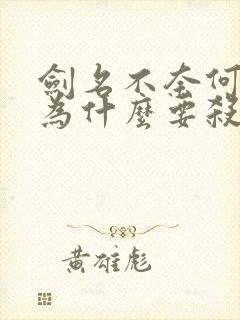 劍名不奈何
為什麼要殺
黃雄彪